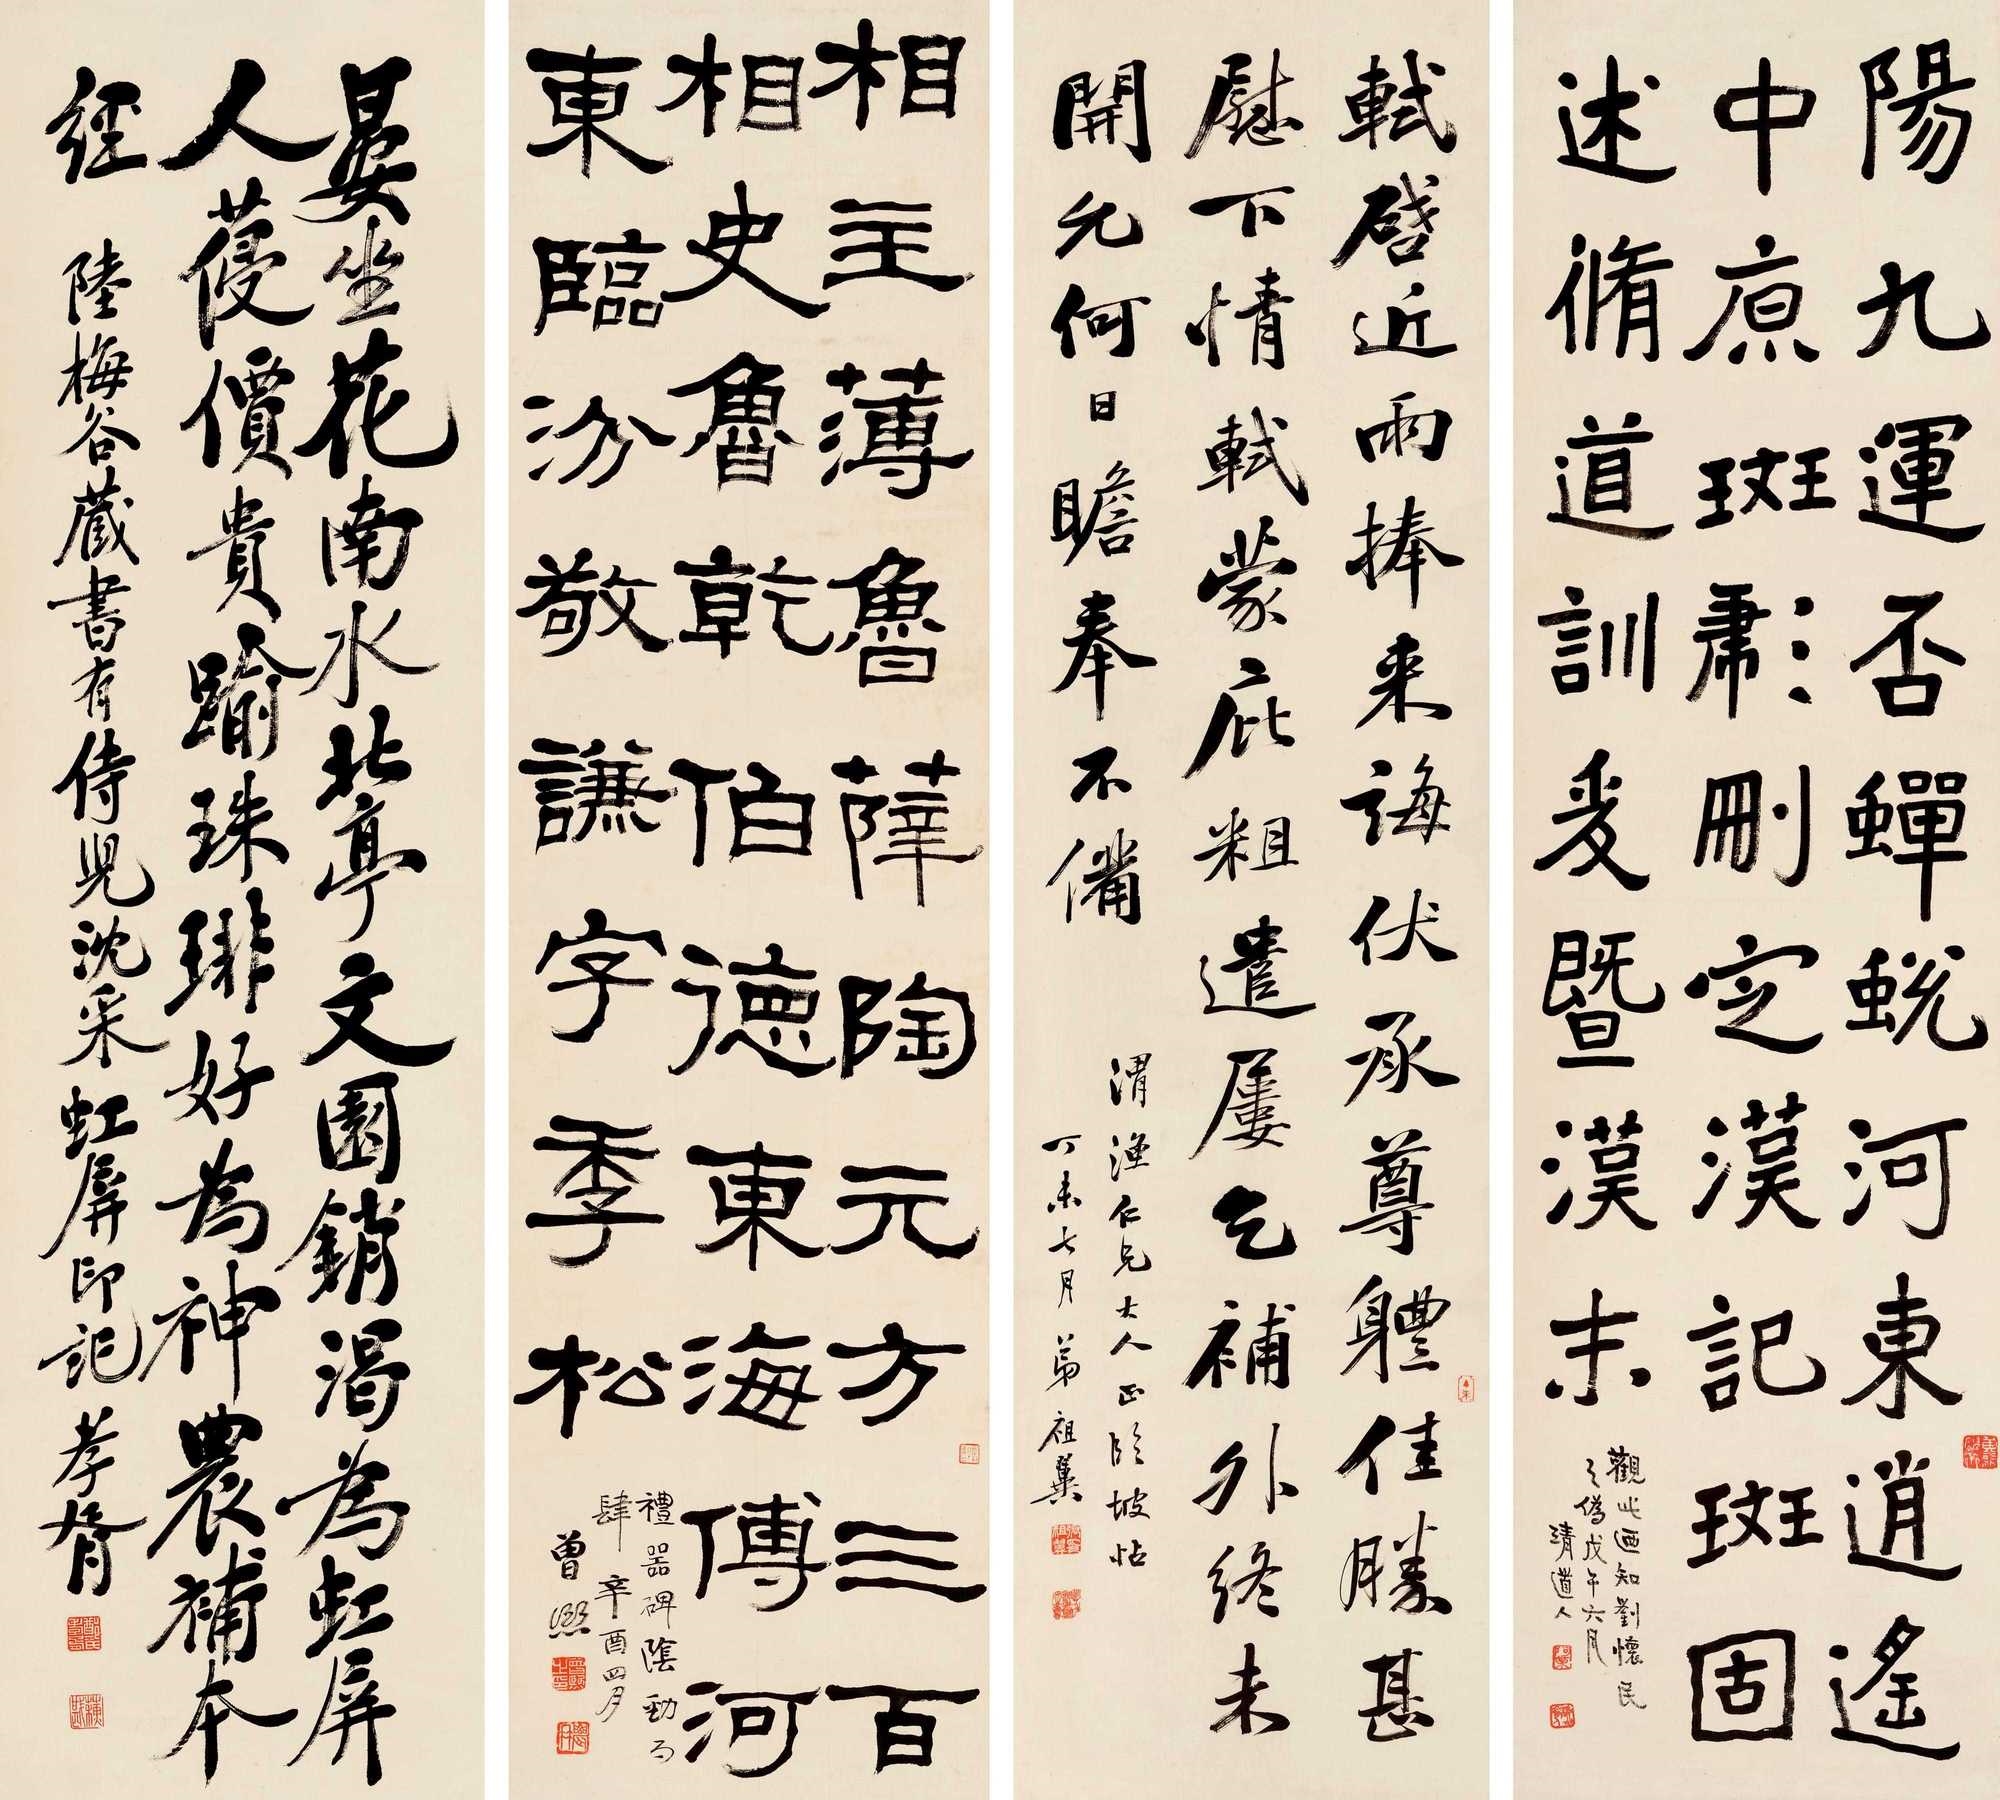 陽九運否蟬蛻河東逍遙
中原斑彪刪定漢記斑固
述脩道訓爰暨漢末
觀此迺知劉懷民
之偽戊午六月
清道人
軾啓近雨捧来誨伏承尊體佳勝甚
慰下情軾蒙庇粗遣屢乞補外終未
開允何日瞻奉不備
渭漁仁兄大人正臨坡帖
丁未七月弟祖翼
相主薄魯薛陶元方三百
相史魯乾伯德東海傅河
東臨汾敬謙字季松
禮器碑陰勁而
肆辛酉四月
曾熙
晏坐花南水北亭文園銷渴為虹屏
人葠價貴踰珠琲好為神農補本
經陸梅谷藏書有侍兒沈采虹屏印記孝胥